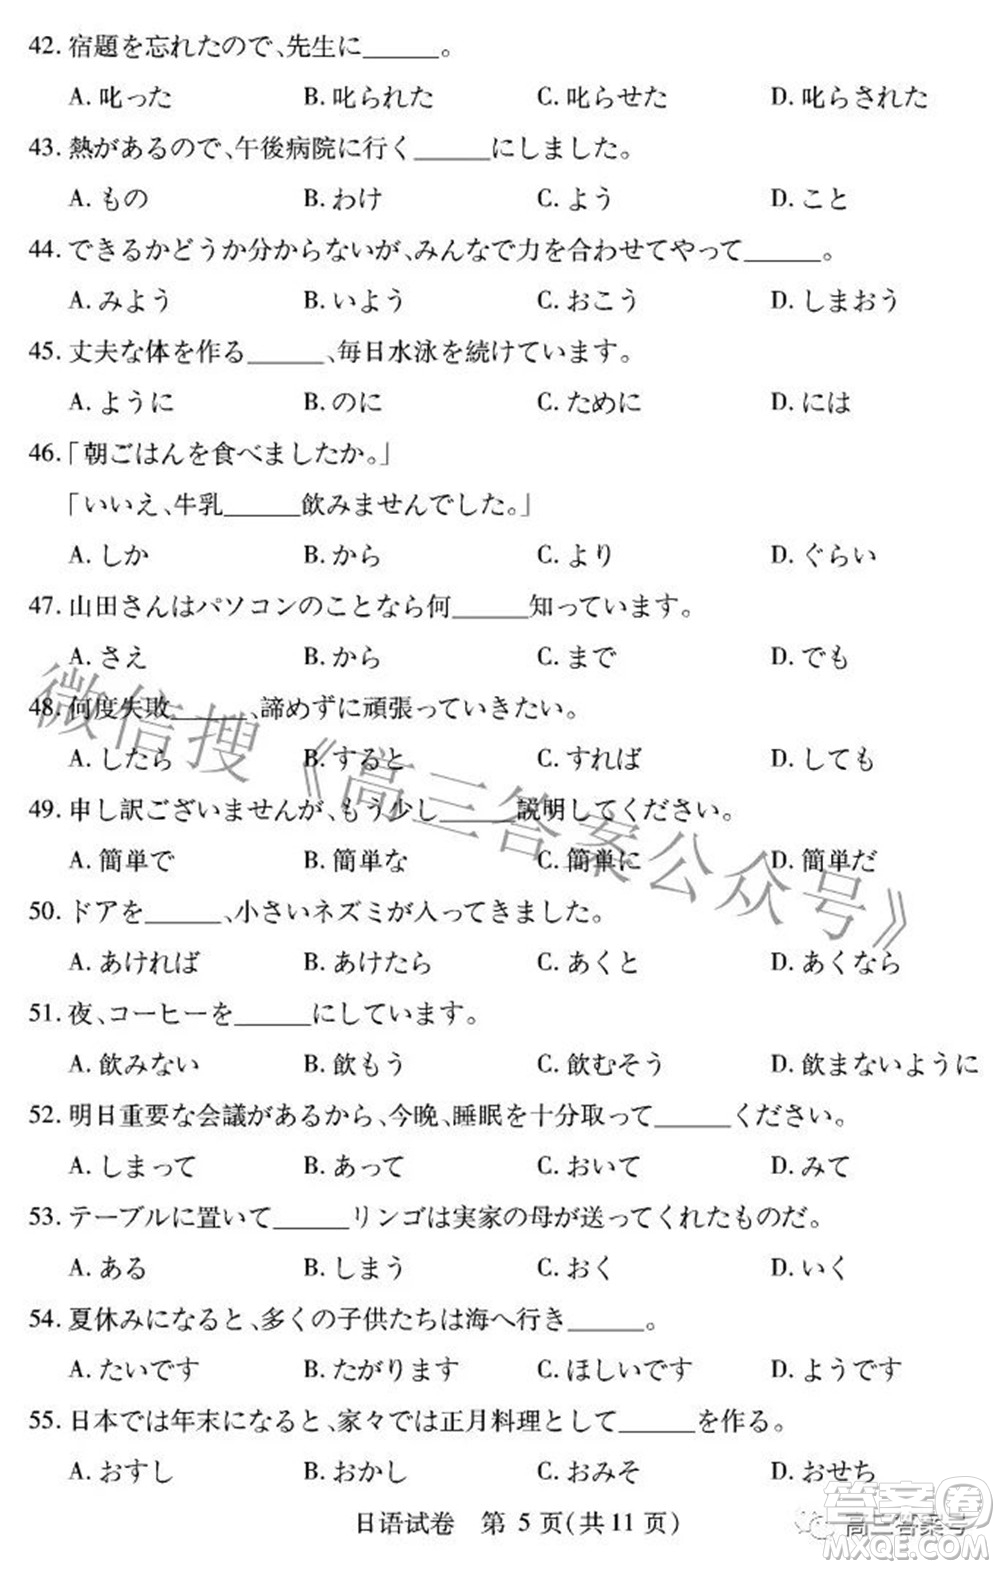 42. 宿題を忘れたので、先生に______。
A. 叱った B. 叱られた C. 叱らせた D. 叱らされた
43. 熱があるので、午後病院に行く______にしました。
A. もの B. わけ C. よう D. こと
44. できるかどうか分からないが、みんなで力を合わせてやって______。
A. みよう B. いよう C. おこう D. しまおう
45. 丈夫な体を作る______、毎日水泳を続けています。
A. ように B. のに C. ために D. には
46. 「朝ごはんを食べましたか。」
「いいえ、牛乳______飲みませんでした。」
A. しか B. から C. より D. ぐらい
47. 山田さんはパソコンのことなら何______知っています。
A. さえ B. から C. まで D. でも
48. 何度失敗______、諦めずに頑張っていきたい。
A. したら B. すると C. すれば D. しても
49. 申し訳ございませんが、もう少し______説明してください。
A. 簡単で B. 簡単な C. 簡単に D. 簡単だ
50. ドアを______、小さいネズミが入ってきました。
A. あければ B. あけたら C. あくと D. あくなら
51. 夜、コーヒーを______にしています。
A. 飲みない B. 飲もう C. 飲むそう D. 飲まないように
52. 明日重要な会議があるから、今晩、睡眠を十分取って______ください。
A. しまって B. あって C. おいて D. みて
53. テーブルに置いて______リンゴは実家の母が送ってくれたものだ。
A. ある B. しまう C. おく D. いく
54. 夏休みになると、多くの子供たちは海へ行き______。
A. たいです B. たがります C. ほしいです D. ようです
55. 日本では年末になると、家々では正月料理として______を作る。
A. おすし B. おかし C. おみそ D. おせち
日语试卷 第 5 页(共 11 页)
微信搜《高三答案公众号》
高三答案号
答案圈
MXQE.COM